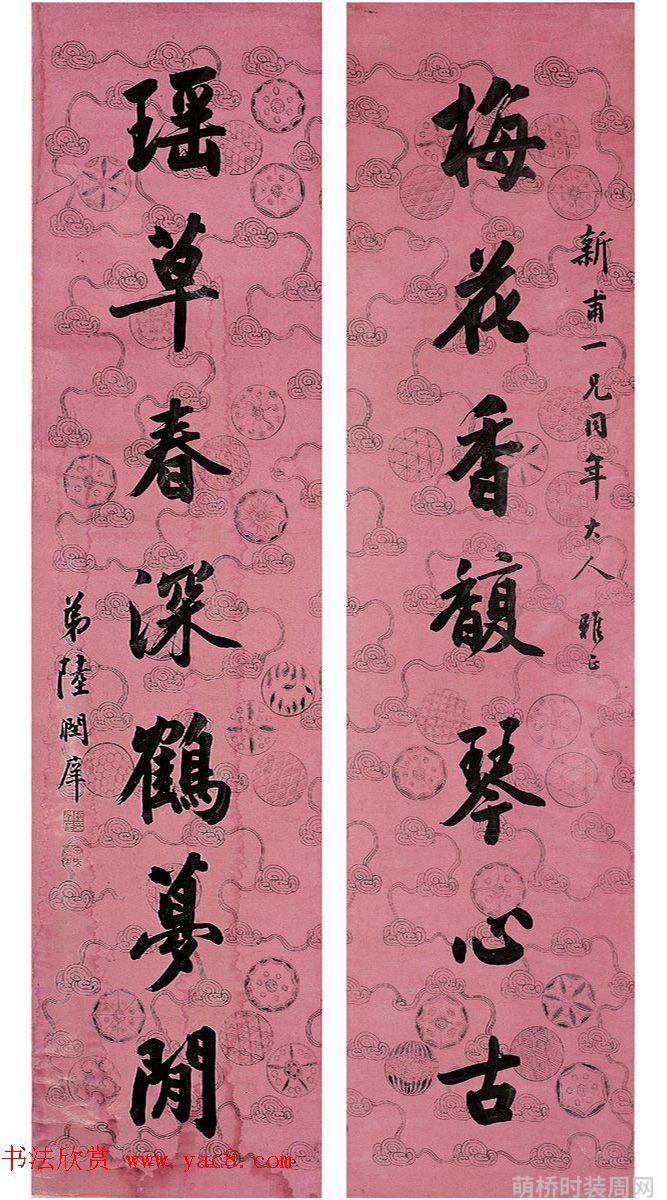 新甫一兄同年大人 雅正
梅花香馥琴心古
瑶草春深鶴夢閒
弟陸潤庠
书法欣赏 www.yac8.com
萌桥时装周网